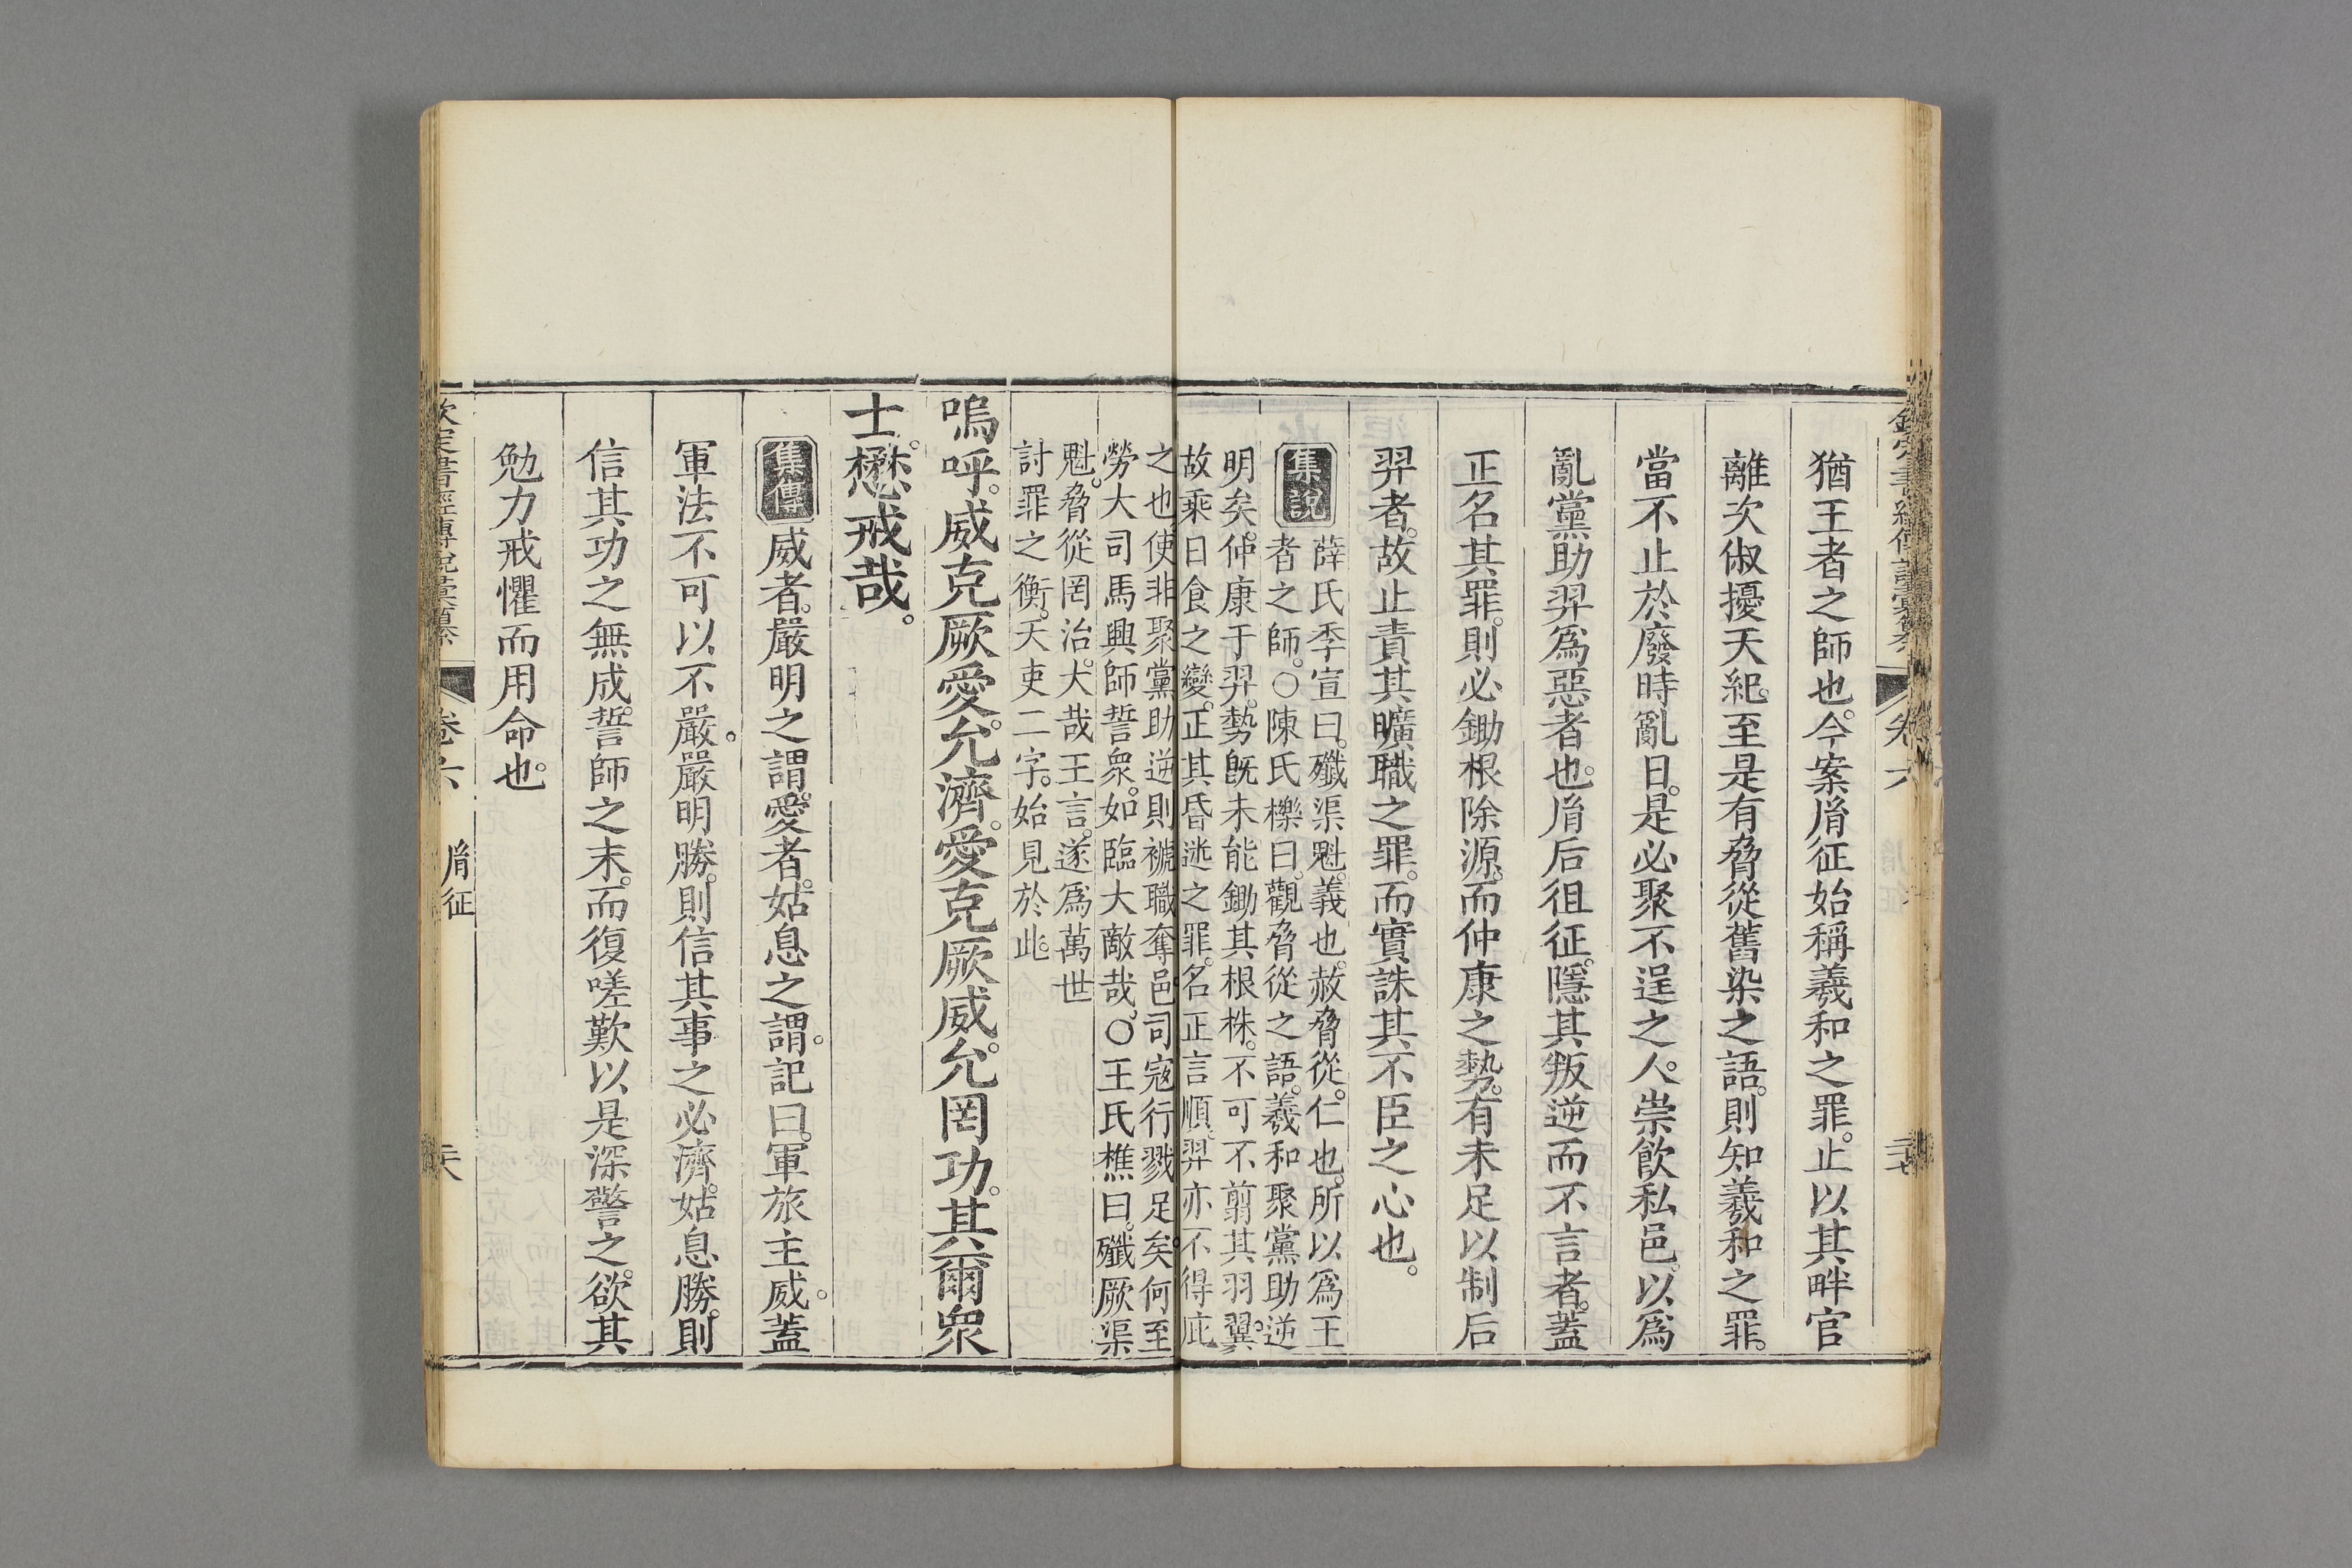 猶王者之師也。今案胤征始稱羲和之罪。止以其畔官
離次俶擾天紀。至是有脅從舊染之語。則知羲和之罪。
當不止於廢時亂日。是必聚不逞之人。崇飮私邑。以爲
亂黨助羿爲惡者也。胤后徂征。隱其叛逆而不言者。蓋
正名其罪。則必鋤根除源。而仲康之勢。有未足以制后
羿者。故止責其曠職之罪。而實誅其不臣之心也。
集說
薛氏季宣曰。殲渠魁。義也。赦脅從。仁也。所以爲王
者之師。○陳氏櫟曰。觀脅從之語。羲和聚黨助逆
明矣。仲康于羿。勢旣未能鋤其根株。不可不剪其羽翼。
故乘日食之變。正其昏迷之罪。名正言順。羿亦不得庇
之也。使非聚黨助逆則褫職奪邑司寇行戮足矣。何至
勞大司馬興師誓衆。如臨大敵哉。○王氏樵曰。殲厥渠
魁。脅從罔治。大哉王言。遂爲萬世
討罪之衡。天吏二字。始見於此。
嗚呼。威克厥愛。允濟。愛克厥威。允罔功。其爾衆
士。懋戒哉。
集傳
威者。嚴明之謂。愛者。姑息之謂。記曰。軍旅主威。蓋
軍法不可以不嚴。嚴明勝。則信其事之必濟。姑息勝。則
信其功之無成。誓師之末。而復嗟歎以是深警之。欲其
勉力戒懼而用命也。
欽定書經傳說彙纂
卷六
胤征